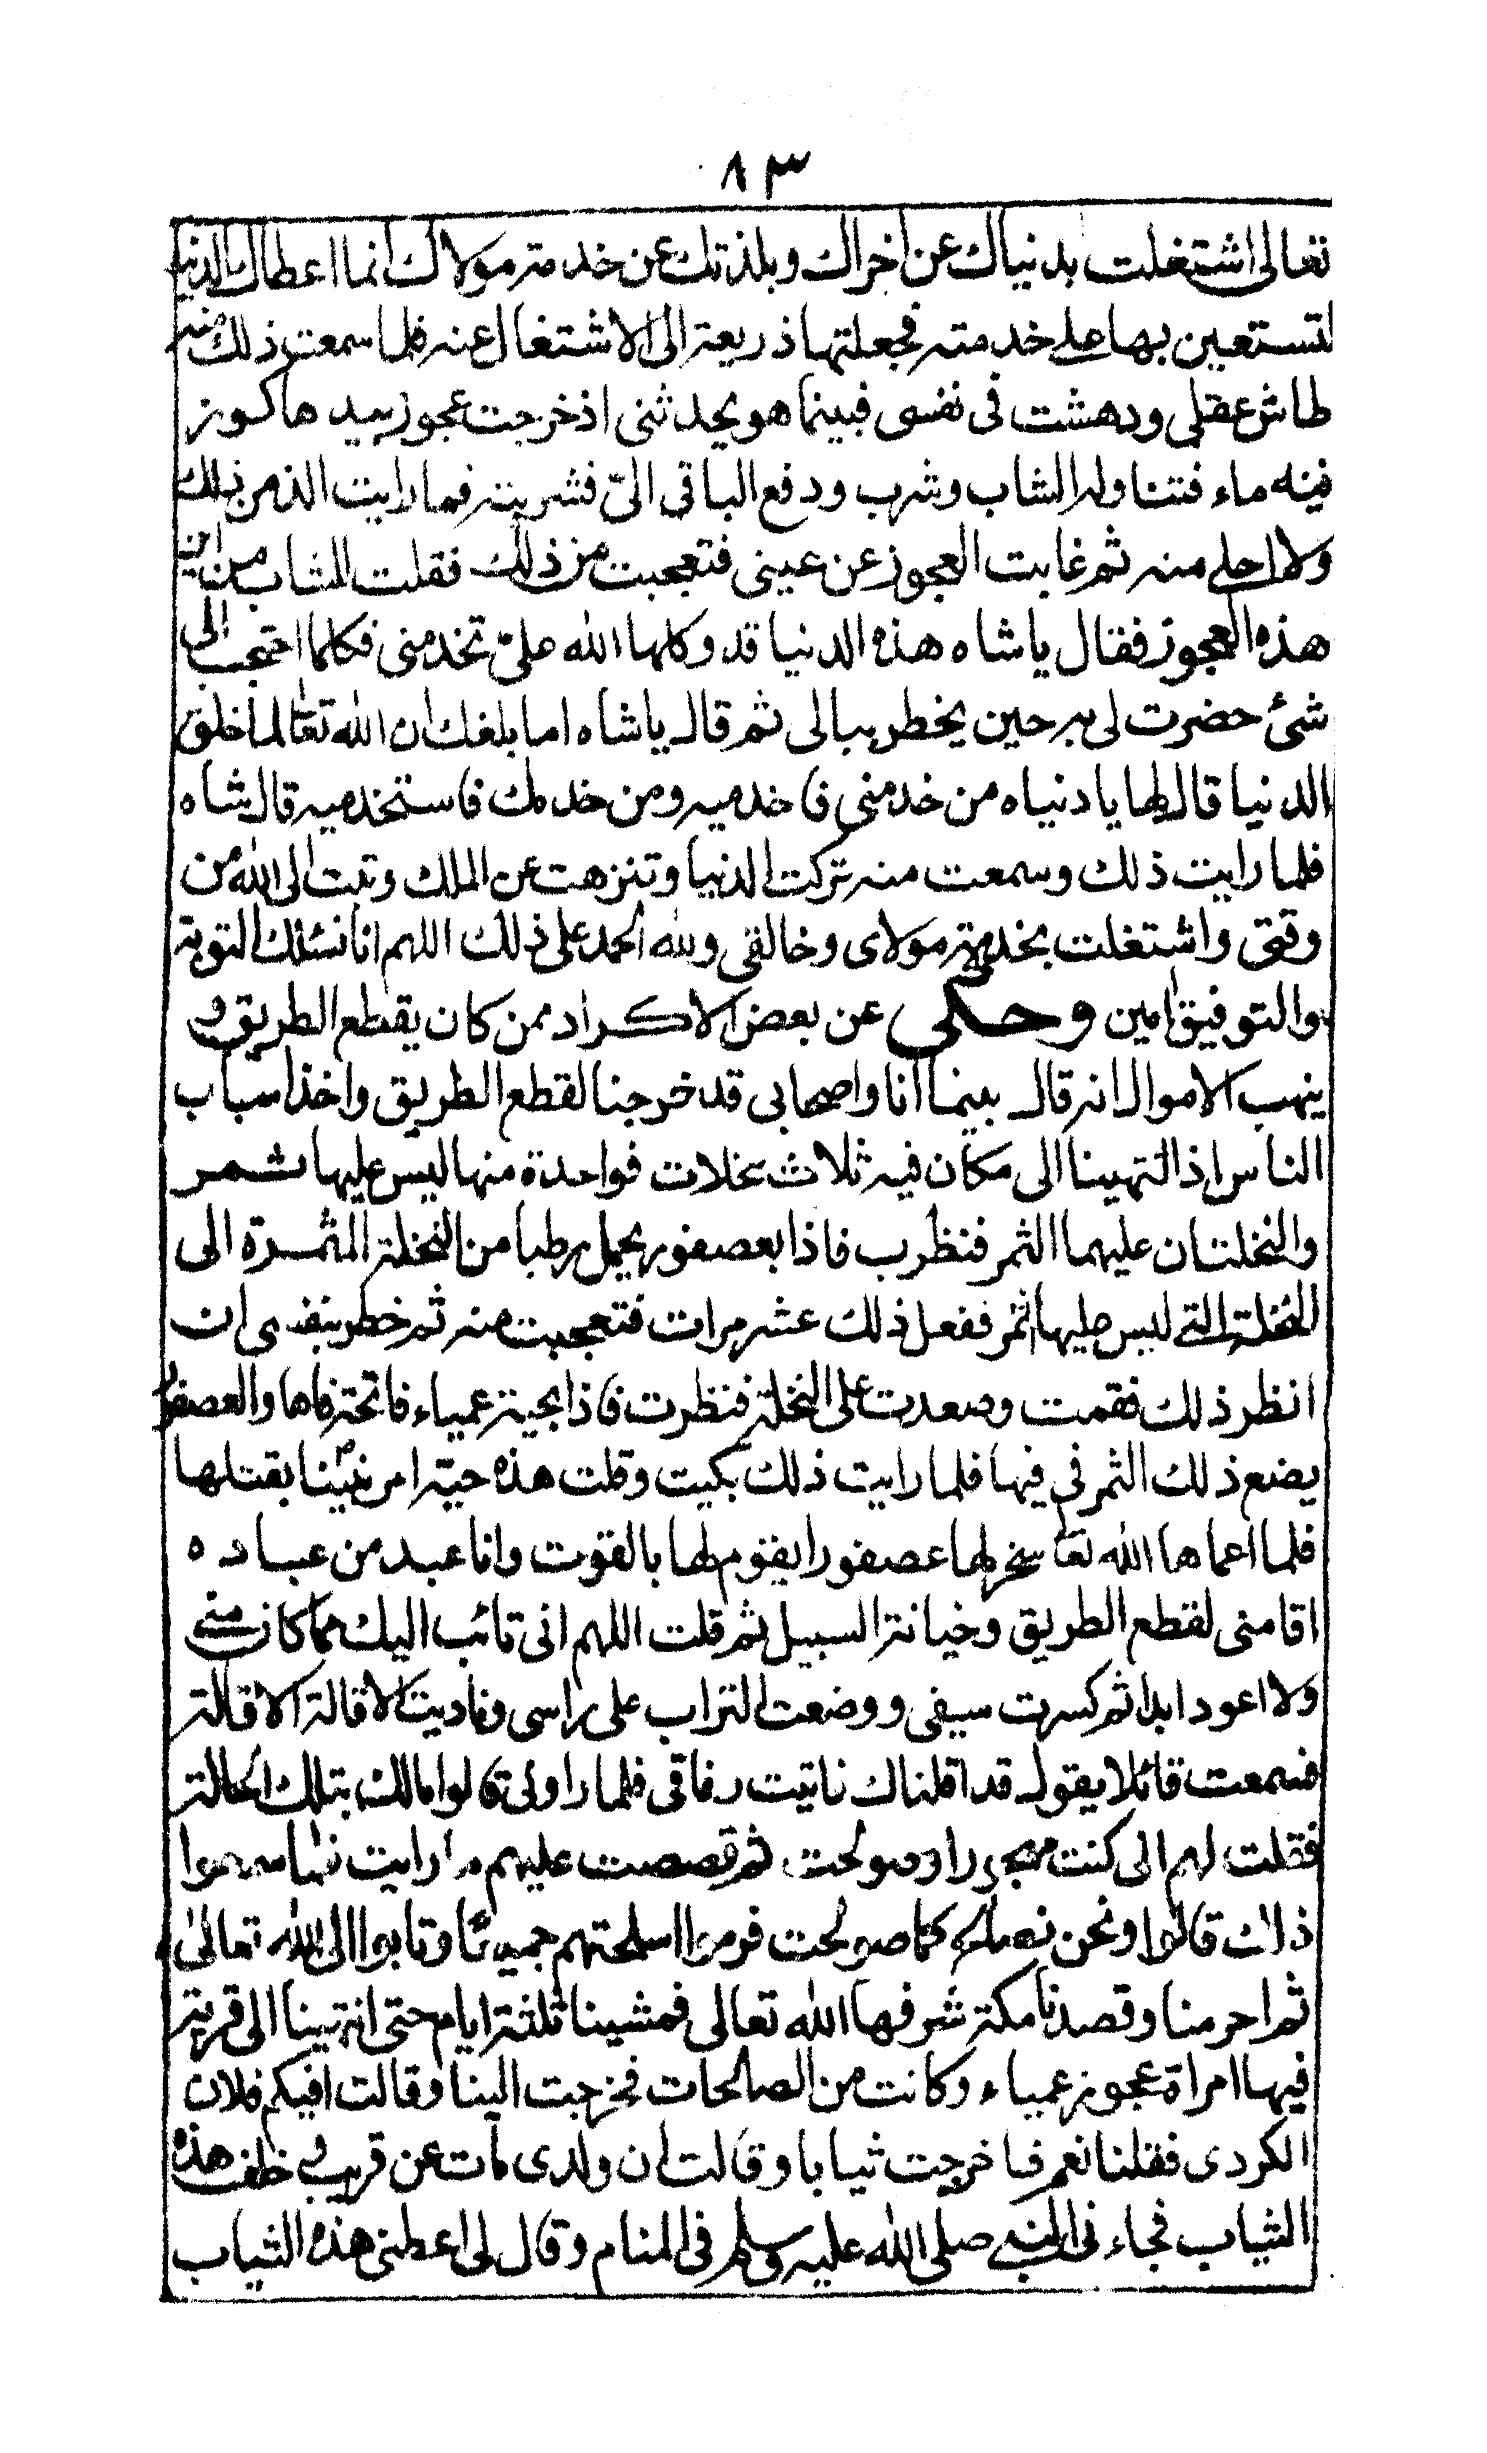 ٨٣
تعالى اشتغلت بدنياك عن اخراك وبلذتك عن خدمته مولاك انما اعطاك الدنيا
لتستعين بها على خدمته فجعلتها ذريعة الى الاشتغال عنه فلما سمعت ذلك منه
طاش عقلي ودهشت فى نفسى فبينما هو يحدثنى اذ خرجت عجوز بيدها كوز
فيه ماء فتناوله الشاب وشرب ودفع الباقى الىّ فشربته فما رايت الذ من ذلك
ولا احلى منه ثم غابت العجوز عن عينى فتعجبت من ذلك فقلت للشاب من اين
هذه العجوز فقال يا شاه هذه الدنيا قد وكلها الله علىّ تخدمنى فكلما احتجت الى
شئ حضرت لى به حين يخطر ببالى ثم قال يا شاه اما بلغك ان الله تعالى لما خلق
الدنيا قال لها يا دنياه من خدمنى فاخدميه ومن خدمك فاستخدميه قال شاه
فلما رايت ذلك وسمعت منه تركت الدنيا وتنزهت عن الملك وتبت الى الله من
وقتى واشتغلت بخدمة مولاى وخالقى ولله الحمد على ذلك اللهم انا نسئلك التوبة
والتوفيق امين وحكى عن بعض الاكراد ممن كان يقطع الطريق و
ينهب الاموال انه قال بينما انا واصحابى قد خرجنا لقطع الطريق واخذ اسباب
الناس اذ انتهينا الى مكان فيه ثلاث نخلات فواحدة منها ليس عليها ثمر
والنخلتان عليهما الثمر فنظرب فاذا بعصفور يحمل رطبا من النخلة المثمرة الى
النخلة التى ليس عليها ثمر ففعل ذلك عشر مرات فتعجبت منه ثم خطر بنفسى ان
انظر ذلك فقمت وصعدت على النخلة فنظرت فاذا بحية عمياء فاتحة فاها والعصفور
يضع ذلك الثمر فى فيها فلما رايت ذلك بكيت وقلت هذه حيّة امر نبيّنا بقتلها
فلما اعماها الله تعا سخر لها عصفورا يقوم لها بالقوت وانا عبد من عباده
اقامنى لقطع الطريق وخيانة السبيل ثم قلت اللهم انى تائب اليك مما كان منى
ولا اعود ابدا ثم كسرت سيفى ووضعت التراب على راسى وناديت الاقالة الاقالة
فسمعت قائلا يقول قد اقلناك فاتيت رفاقى فلما راونى قالوا مالك بتلك الحالة
فقلت لهم انى كنت مهجورا وصولحت ثم قصصت عليهم ما رايت فلما سمعوا
ذلك قالوا ونحن نصالح كما صولحت فرموا اسلحتهم جميعا وتابوا الى الله تعالى
ثم احرمنا وقصدنا مكة شرفها الله تعالى فمشينا ثلثة ايام حتى انتهينا الى قرية
فيها امراة عجوز عمياء وكانت من الصالحات فخرجت الينا وقالت افيكم فلان
الكردى فقلنا نعم فاخرجت ثيابا وقالت ان ولدى مات عن قريب وخلف هذه
الثياب فجاءنى النبى صلى الله عليه وسلم فى المنام وقال لى اعطنى هذه الثياب